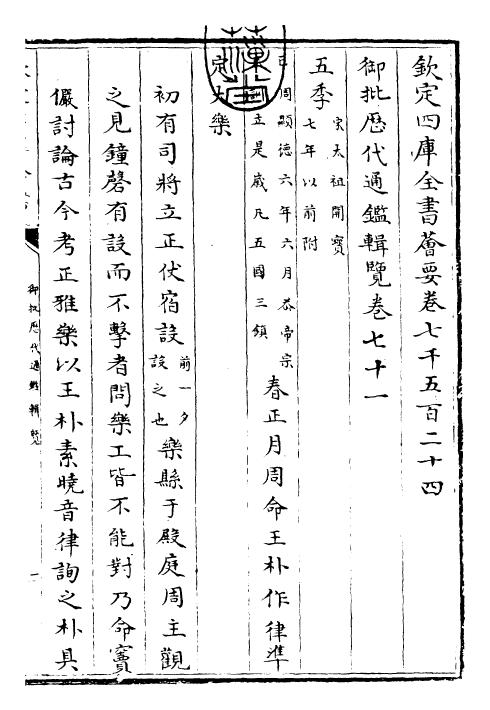 欽定四庫全書薈要卷七千五百二十四
御批歷代通鑑輯覽卷七十一
五季 宋太祖開寶七年以前附
周顯德六年六月恭帝宗訓立是歲凡五國三鎮 春正月周命王朴作律準
定大樂
初有司將立正伏宿設 前一夕設之也 樂縣于殿庭周主觀
之見鐘磬有設而不擊者問樂工皆不能對乃命竇
儼討論古今考正雅樂以王朴素曉音律詢之朴具
御批歷代通鑑輯覽
一